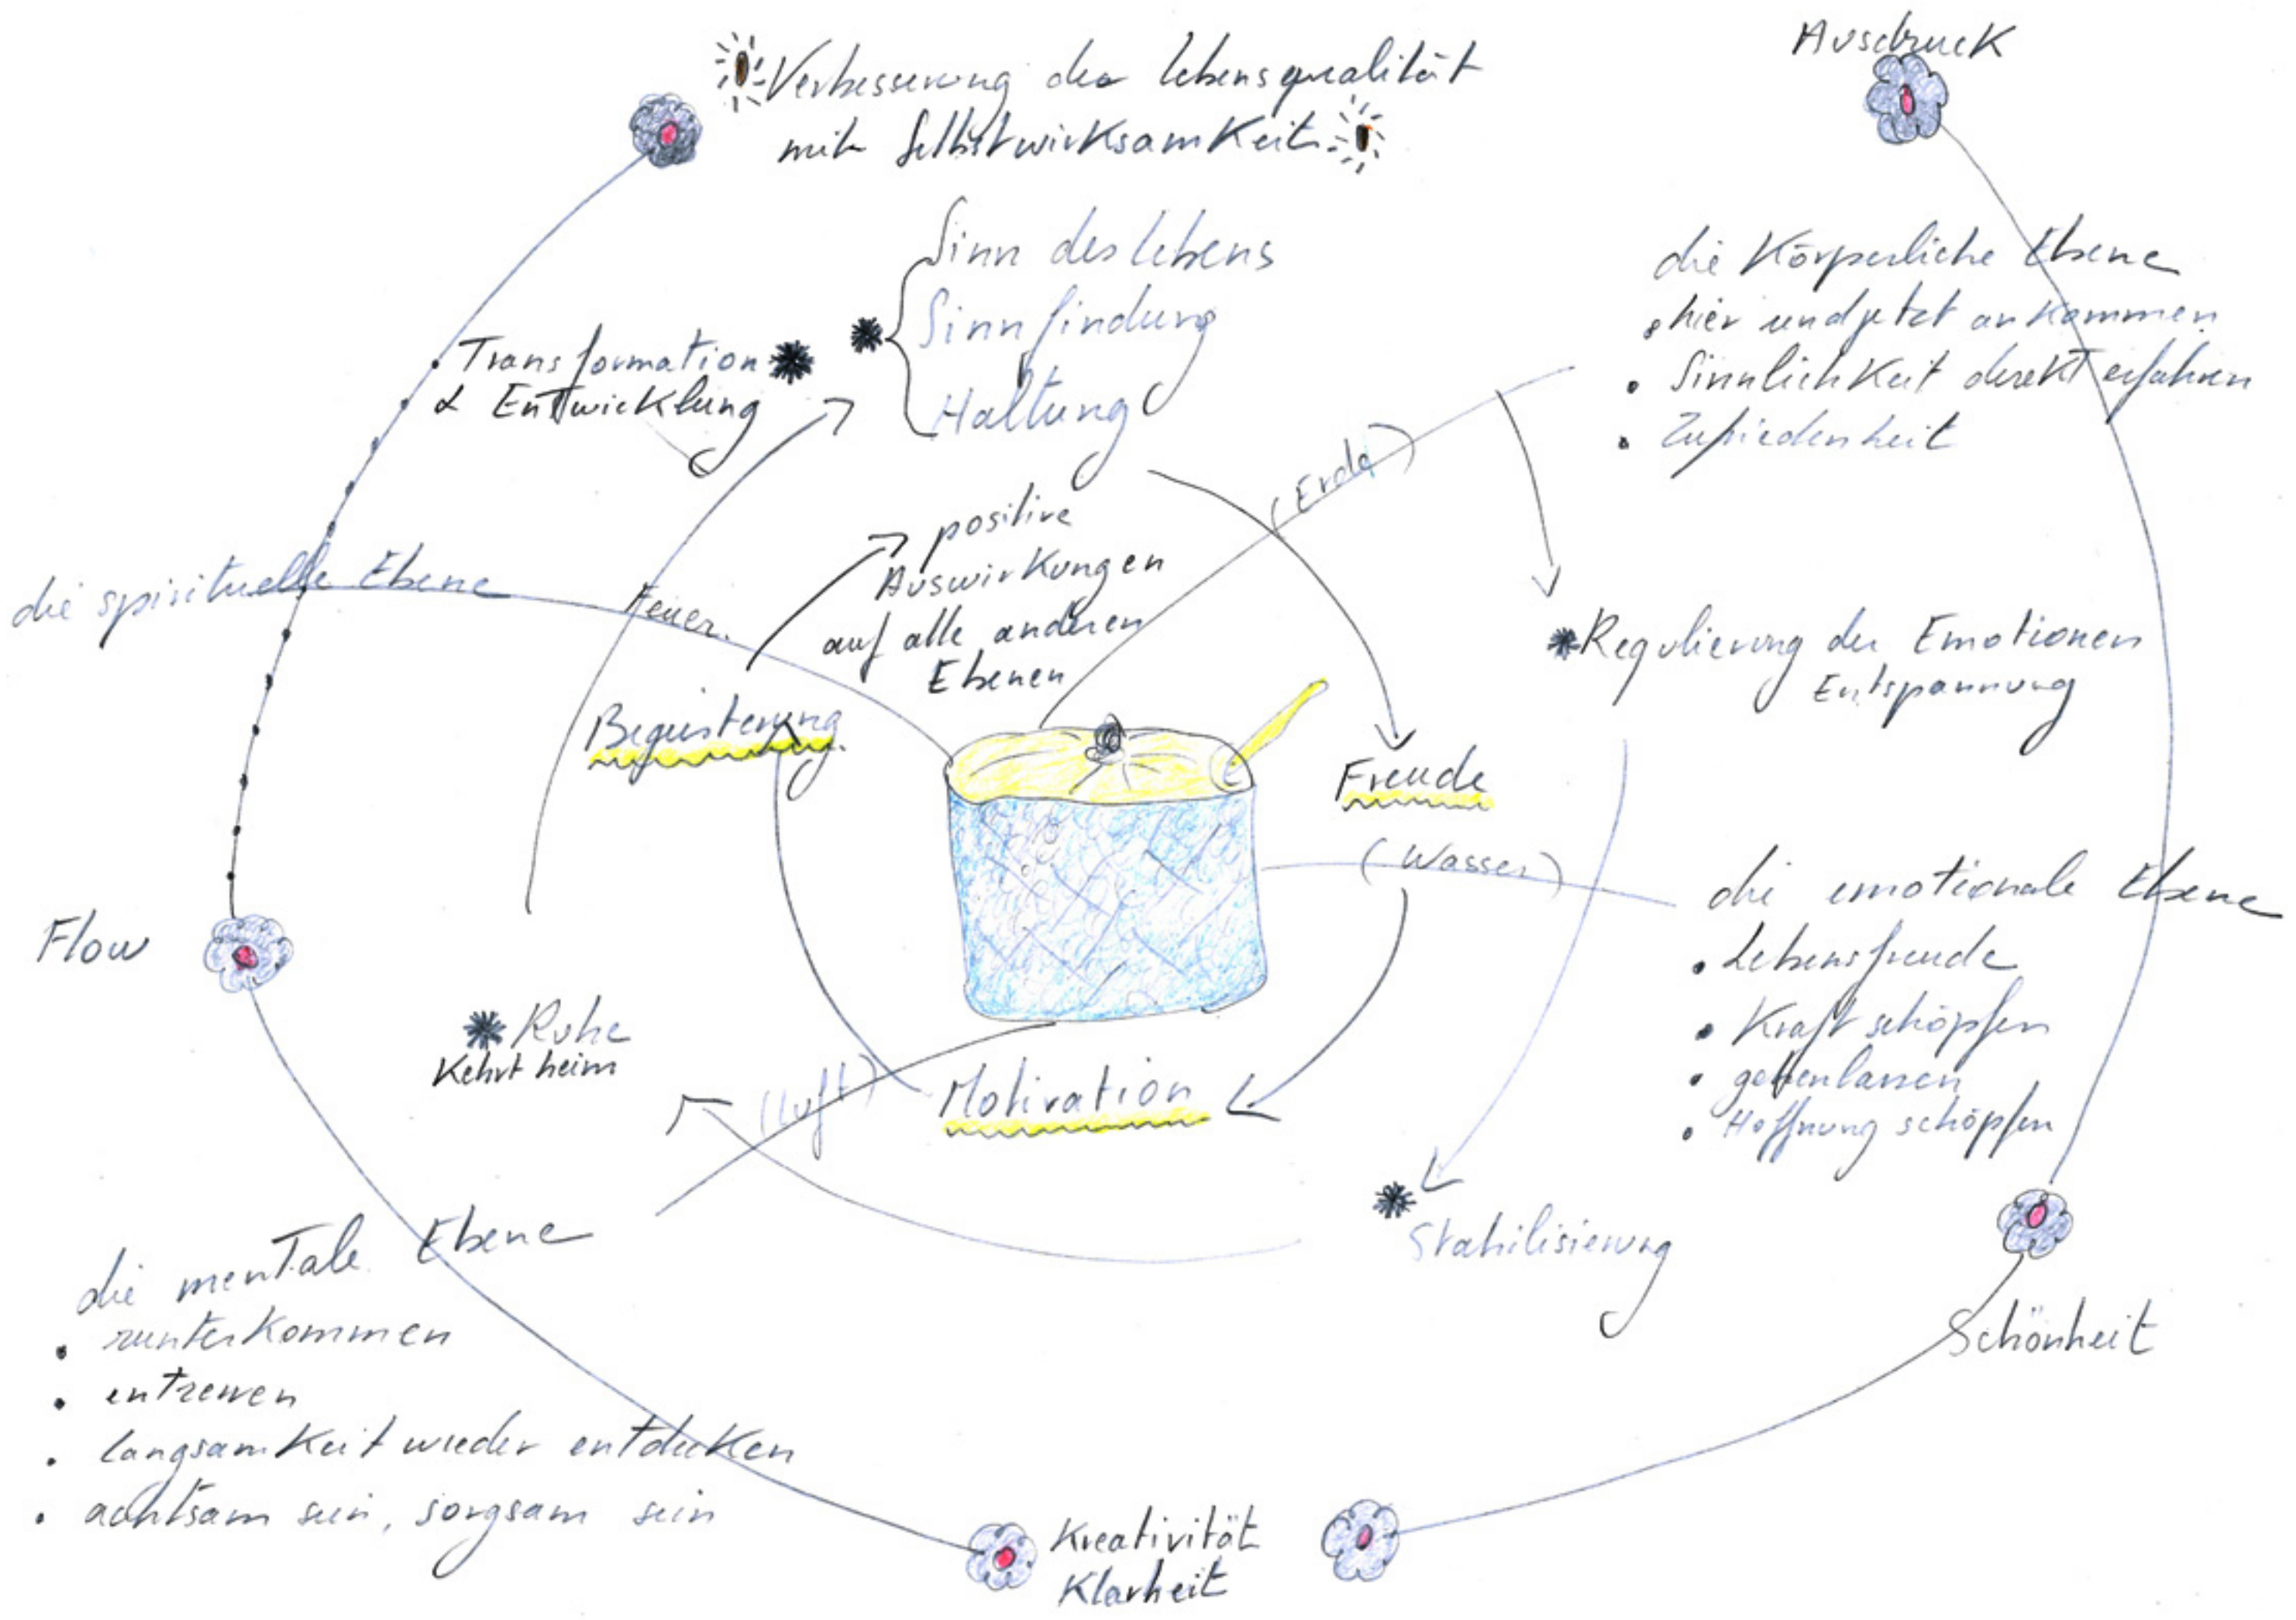 Ausdruck
Verbesserung der Lebensqualität
mit Selbstwirksamkeit
Sinn des Lebens
Sinnfindung
Haltung
Transformation
& Entwicklung
die Körperliche Ebene
• hier und jetzt ankommen
• Sinnlichkeit direkt erfahren
• Zufriedenheit
(Erde)
positive
Auswirkungen
auf alle anderen
Ebenen
die spirituelle Ebene
Feuer.
Regulierung der Emotionen
Entspannung
Begeisterung
Freude
(Wasser)
die emotionale Ebene
• Lebensfreude
• Kraft schöpfen
• gehenlassen
• Hoffnung schöpfen
Flow
Ruhe
Kehrt heim
(Luft)
Motivation
Stabilisierung
die mentale Ebene
• runterkommen
•
• Langsamkeit wieder entdecken
• achtsam sein, sorgsam sein
Schönheit
Kreativität
Klarheit